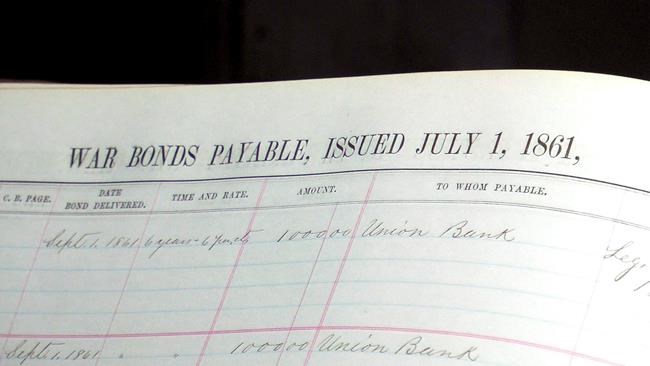 WAR BONDS PAYABLE, ISSUED JULY 1, 1861,
C. B. PAGE. DATE BOND DELIVERED. TIME AND RATE. AMOUNT. TO WHOM PAYABLE.
Sept. 1. 1861 6 years - 6 per ct 1000 00 Union Bank
Sept. 1. 1861 " " 1000 00 Union Bank